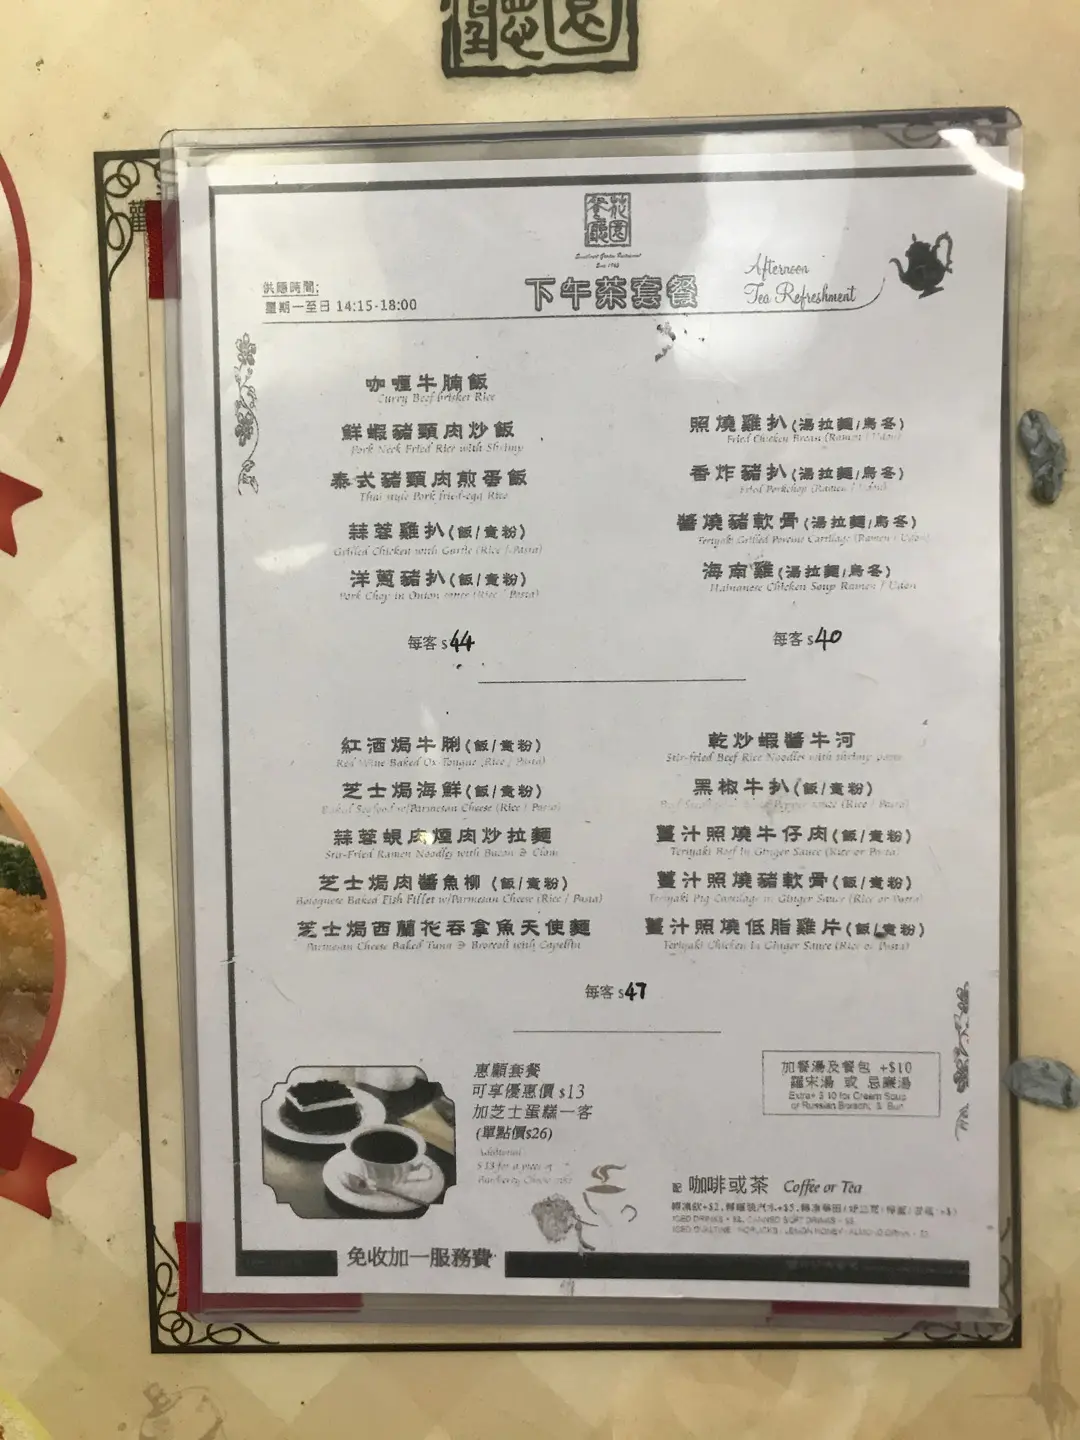 餐花
廳園
Since 1968
供應時間:
星期一至日 14:15-18:00
下午茶套餐
Afternoon
Tea Refreshment
咖喱牛腩飯
Curry Beef brisket Rice
鮮蝦豬頸肉炒飯
Pork Neck Fried Rice with Shrimp
泰式豬頸肉煎蛋飯
Thai style Pork fried-egg Rice
蒜蓉雞扒(飯/意粉)
Grilled Chicken with Garlic (Rice / Pasta)
洋蔥豬扒(飯/意粉)
Pork Chop in Onion (Rice / Pasta)
每客 $44
照燒雞扒(湯拉麵/烏冬)
Fried Chicken Breast (Ramen / Udon)
香炸豬扒(湯拉麵/烏冬)
Fried Porkchop (Ramen / Udon)
醬燒豬軟骨(湯拉麵/烏冬)
Teriyaki Grilled Porcine Cartilage (Ramen / Udon)
海南雞(湯拉麵/烏冬)
Hainanese Chicken Soup Ramen / Udon
每客 $40
紅酒焗牛脷(飯/意粉)
Red Wine Baked Ox-Tongue (Rice / Pasta)
芝士焗海鮮(飯/意粉)
Baked Seafood w/Parmesan Cheese (Rice / Pasta)
蒜蓉蜆肉煙肉炒拉麵
Stir-Fried Ramen Noodles with Bacon & Clam
芝士焗肉醬魚柳 (飯/意粉)
Bolognese Baked Fish Fillet w/Parmesan Cheese (Rice / Pasta)
芝士焗西蘭花吞拿魚天使麵
Parmesan Cheese Baked Tuna & Broccoli with Capellini
乾炒蝦醬牛河
Stir-fried Beef Rice Noodles with shrimp paste
黑椒牛扒(飯/意粉)
Pepper sauce (Rice / Pasta)
薑汁照燒牛仔肉(飯/意粉)
Teriyaki Beef In Ginger Sauce (Rice or Pasta)
薑汁照燒豬軟骨(飯/意粉)
Teriyaki Pig Cartilage in Ginger Sauce (Rice or Pasta)
薑汁照燒低脂雞片(飯/意粉)
Teriyaki Chicken In Ginger Sauce (Rice or Pasta)
每客 $47
惠顧套餐
可享優惠價 $13
加芝士蛋糕一客
(單點價$26)
Additional
$ 13 for a piece of
加餐湯及餐包 +$10
羅宋湯 或 忌廉湯
Extra+ $ 10 for Cream Soup
or Russian Borsch, & Bun
配 咖啡或茶 Coffee or Tea
免收加一服務費